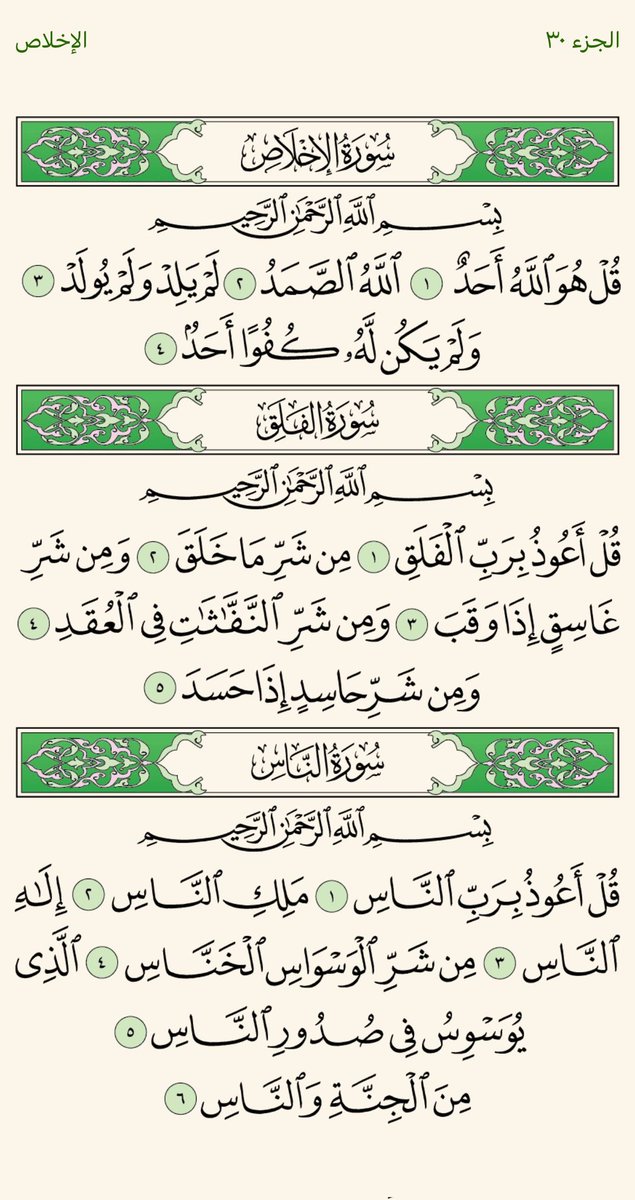 الجزء ٣٠
الإخلاص
سُورَةُ الإِخْلَاصِ
بِسْمِ ٱللَّهِ ٱلرَّحْمَٰنِ ٱلرَّحِيمِ
قُلْ هُوَ ٱللَّهُ أَحَدٌ ١ ٱللَّهُ ٱلصَّمَدُ ٢ لَمْ يَلِدْ وَلَمْ يُولَدْ ٣
وَلَمْ يَكُن لَّهُۥ كُفُوًا أَحَدٌۢ ٤
سُورَةُ الفَلَقِ
بِسْمِ ٱللَّهِ ٱلرَّحْمَٰنِ ٱلرَّحِيمِ
قُلْ أَعُوذُ بِرَبِّ ٱلْفَلَقِ ١ مِن شَرِّ مَا خَلَقَ ٢ وَمِن شَرِّ
غَاسِقٍ إِذَا وَقَبَ ٣ وَمِن شَرِّ ٱلنَّفَّٰثَٰتِ فِى ٱلْعُقَدِ ٤
وَمِن شَرِّ حَاسِدٍ إِذَا حَسَدَ ٥
سُورَةُ النَّاسِ
بِسْمِ ٱللَّهِ ٱلرَّحْمَٰنِ ٱلرَّحِيمِ
قُلْ أَعُوذُ بِرَبِّ ٱلنَّاسِ ١ مَلِكِ ٱلنَّاسِ ٢ إِلَٰهِ
ٱلنَّاسِ ٣ مِن شَرِّ ٱلْوَسْوَاسِ ٱلْخَنَّاسِ ٤ ٱلَّذِى
يُوَسْوِسُ فِى صُدُورِ ٱلنَّاسِ ٥
مِنَ ٱلْجِنَّةِ وَٱلنَّاسِ ٦